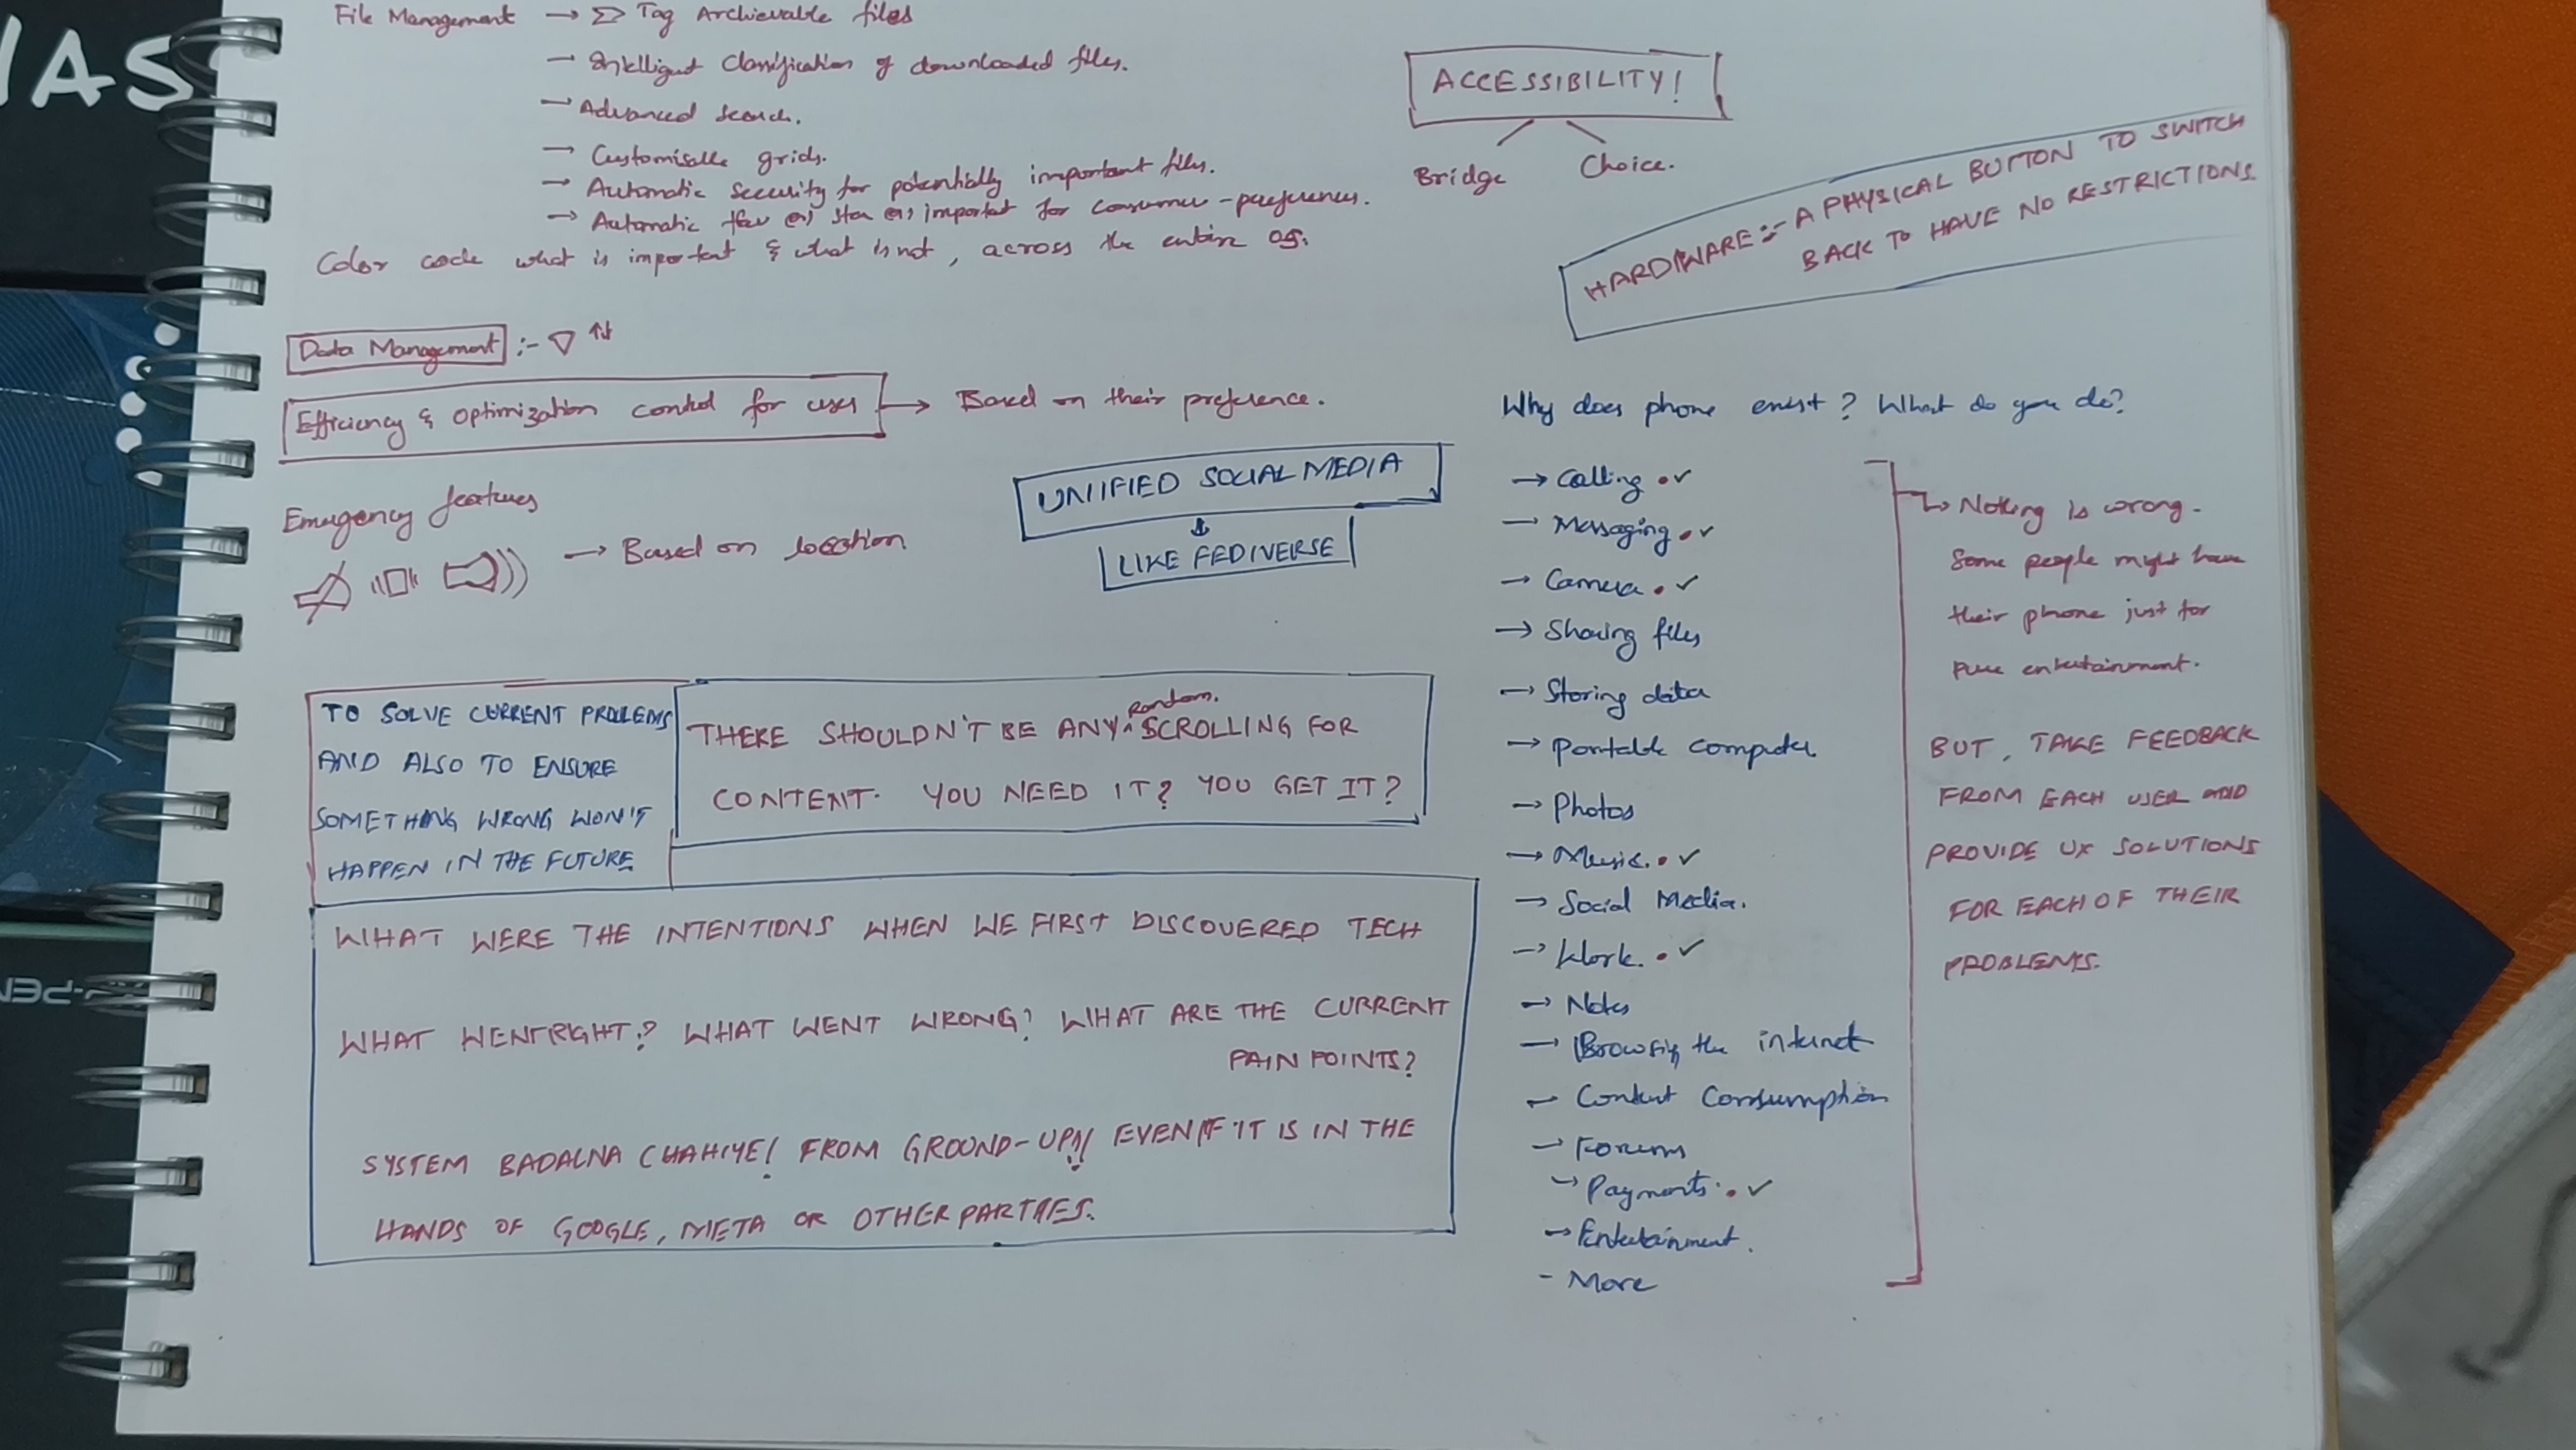 File Management → Tag Archievable files
→ Intelligent Classification of downloaded files.
→ Advanced Search.
→ Customisable grids.
→ Automatic Security for potentially important files.
→ Automatic important for consumer - preferences.
Color code what is important & what is not, across the entire OS.
Data Management :- ▽ ↑↓
Efficiency & optimization control for user → Based on their preference.
Emergency features
→ Based on location
UNIFIED SOCIAL MEDIA
↓
LIKE FEDIVERSE
TO SOLVE CURRENT PROBLEMS
AND ALSO TO ENSURE
SOMETHING WRONG WON'T
HAPPEN IN THE FUTURE
THERE SHOULDN'T BE ANY random. SCROLLING FOR
CONTENT. YOU NEED IT? YOU GET IT?
WHAT WERE THE INTENTIONS WHEN WE FIRST DISCOVERED TECH
WHAT WENT RIGHT? WHAT WENT WRONG? WHAT ARE THE CURRENT
PAIN POINTS?
SYSTEM BADALNA CHAHIYE! FROM GROUND-UP!! EVEN IF IT IS IN THE
HANDS OF GOOGLE, META OR OTHER PARTIES.
ACCESSIBILITY!
Bridge Choice.
HARDWARE :- A PHYSICAL BUTTON TO SWITCH
BACK TO HAVE NO RESTRICTIONS.
Why does phone exist? What do you do?
→ Calling . ✓
→ Messaging . ✓
→ Camera . ✓
→ Sharing files
→ Storing data
→ Portable computer
→ Photos
→ Music. . ✓
→ Social Media.
→ Work. . ✓
→ Notes
→ Browsing the internet
→ Content Consumption
→ Forums
→ Payments . ✓
→ Entertainment.
- More
↳ Nothing is wrong.
Some people might have
their phone just for
pure entertainment.
BUT, TAKE FEEDBACK
FROM EACH USER AND
PROVIDE UX SOLUTIONS
FOR EACH OF THEIR
PROBLEMS.